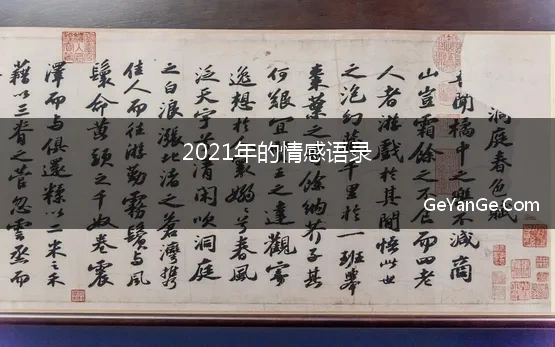 洞庭春色賦
聞橘中之樂不減商
山豈霜餘之不食而四老
人者游戲於其間悟此世
之泡幻藏千里於一班舉
棗葉之餘納芥子其
何艱宜王之達觀寄
逸想於寰嫋兮春風
泛天宇清閑吹洞庭
之白浪漲北渚之蒼灣攜
佳人而往游勤霧鬢與風
鬟命黃頭之千奴卷震
澤而與俱還糅以二米之禾
藉以三脊之菅忽雲烝而
2021年的情感语录
GeYanGe.Com